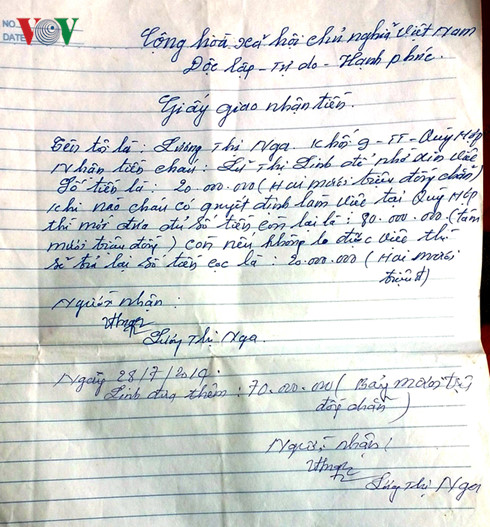 NO
DATE
VOV
Cộng hoà xã hội chủ nghĩa Việt Nam
Độc lập - Tự do - Hạnh phúc.
Giấy giao nhận tiền.
Tên tôi là: Lương Thị Nga. Khối 9 - TT - Quỳ Hợp
Nhận tiền cháu: Lữ Thị Linh để nhờ xin việc
Số tiền là: 20.000.000 (Hai mươi triệu đồng chẵn)
Khi nào cháu có quyết định làm việc tại Quỳ Hợp
thì mới đưa đủ số tiền còn lại là: 80.000.000 (tám
mươi triệu đồng) còn nếu không lo được việc thì
sẽ trả lại số tiền cọc là: 20.000.000 (Hai mươi
triệu đ)
Người nhận:
Lương Thị Nga.
Ngày 28/7/2010:
Linh đưa thêm: 70.000.000 (Bảy mươi triệu
đồng chẵn)
Người nhận
Lương Thị Nga